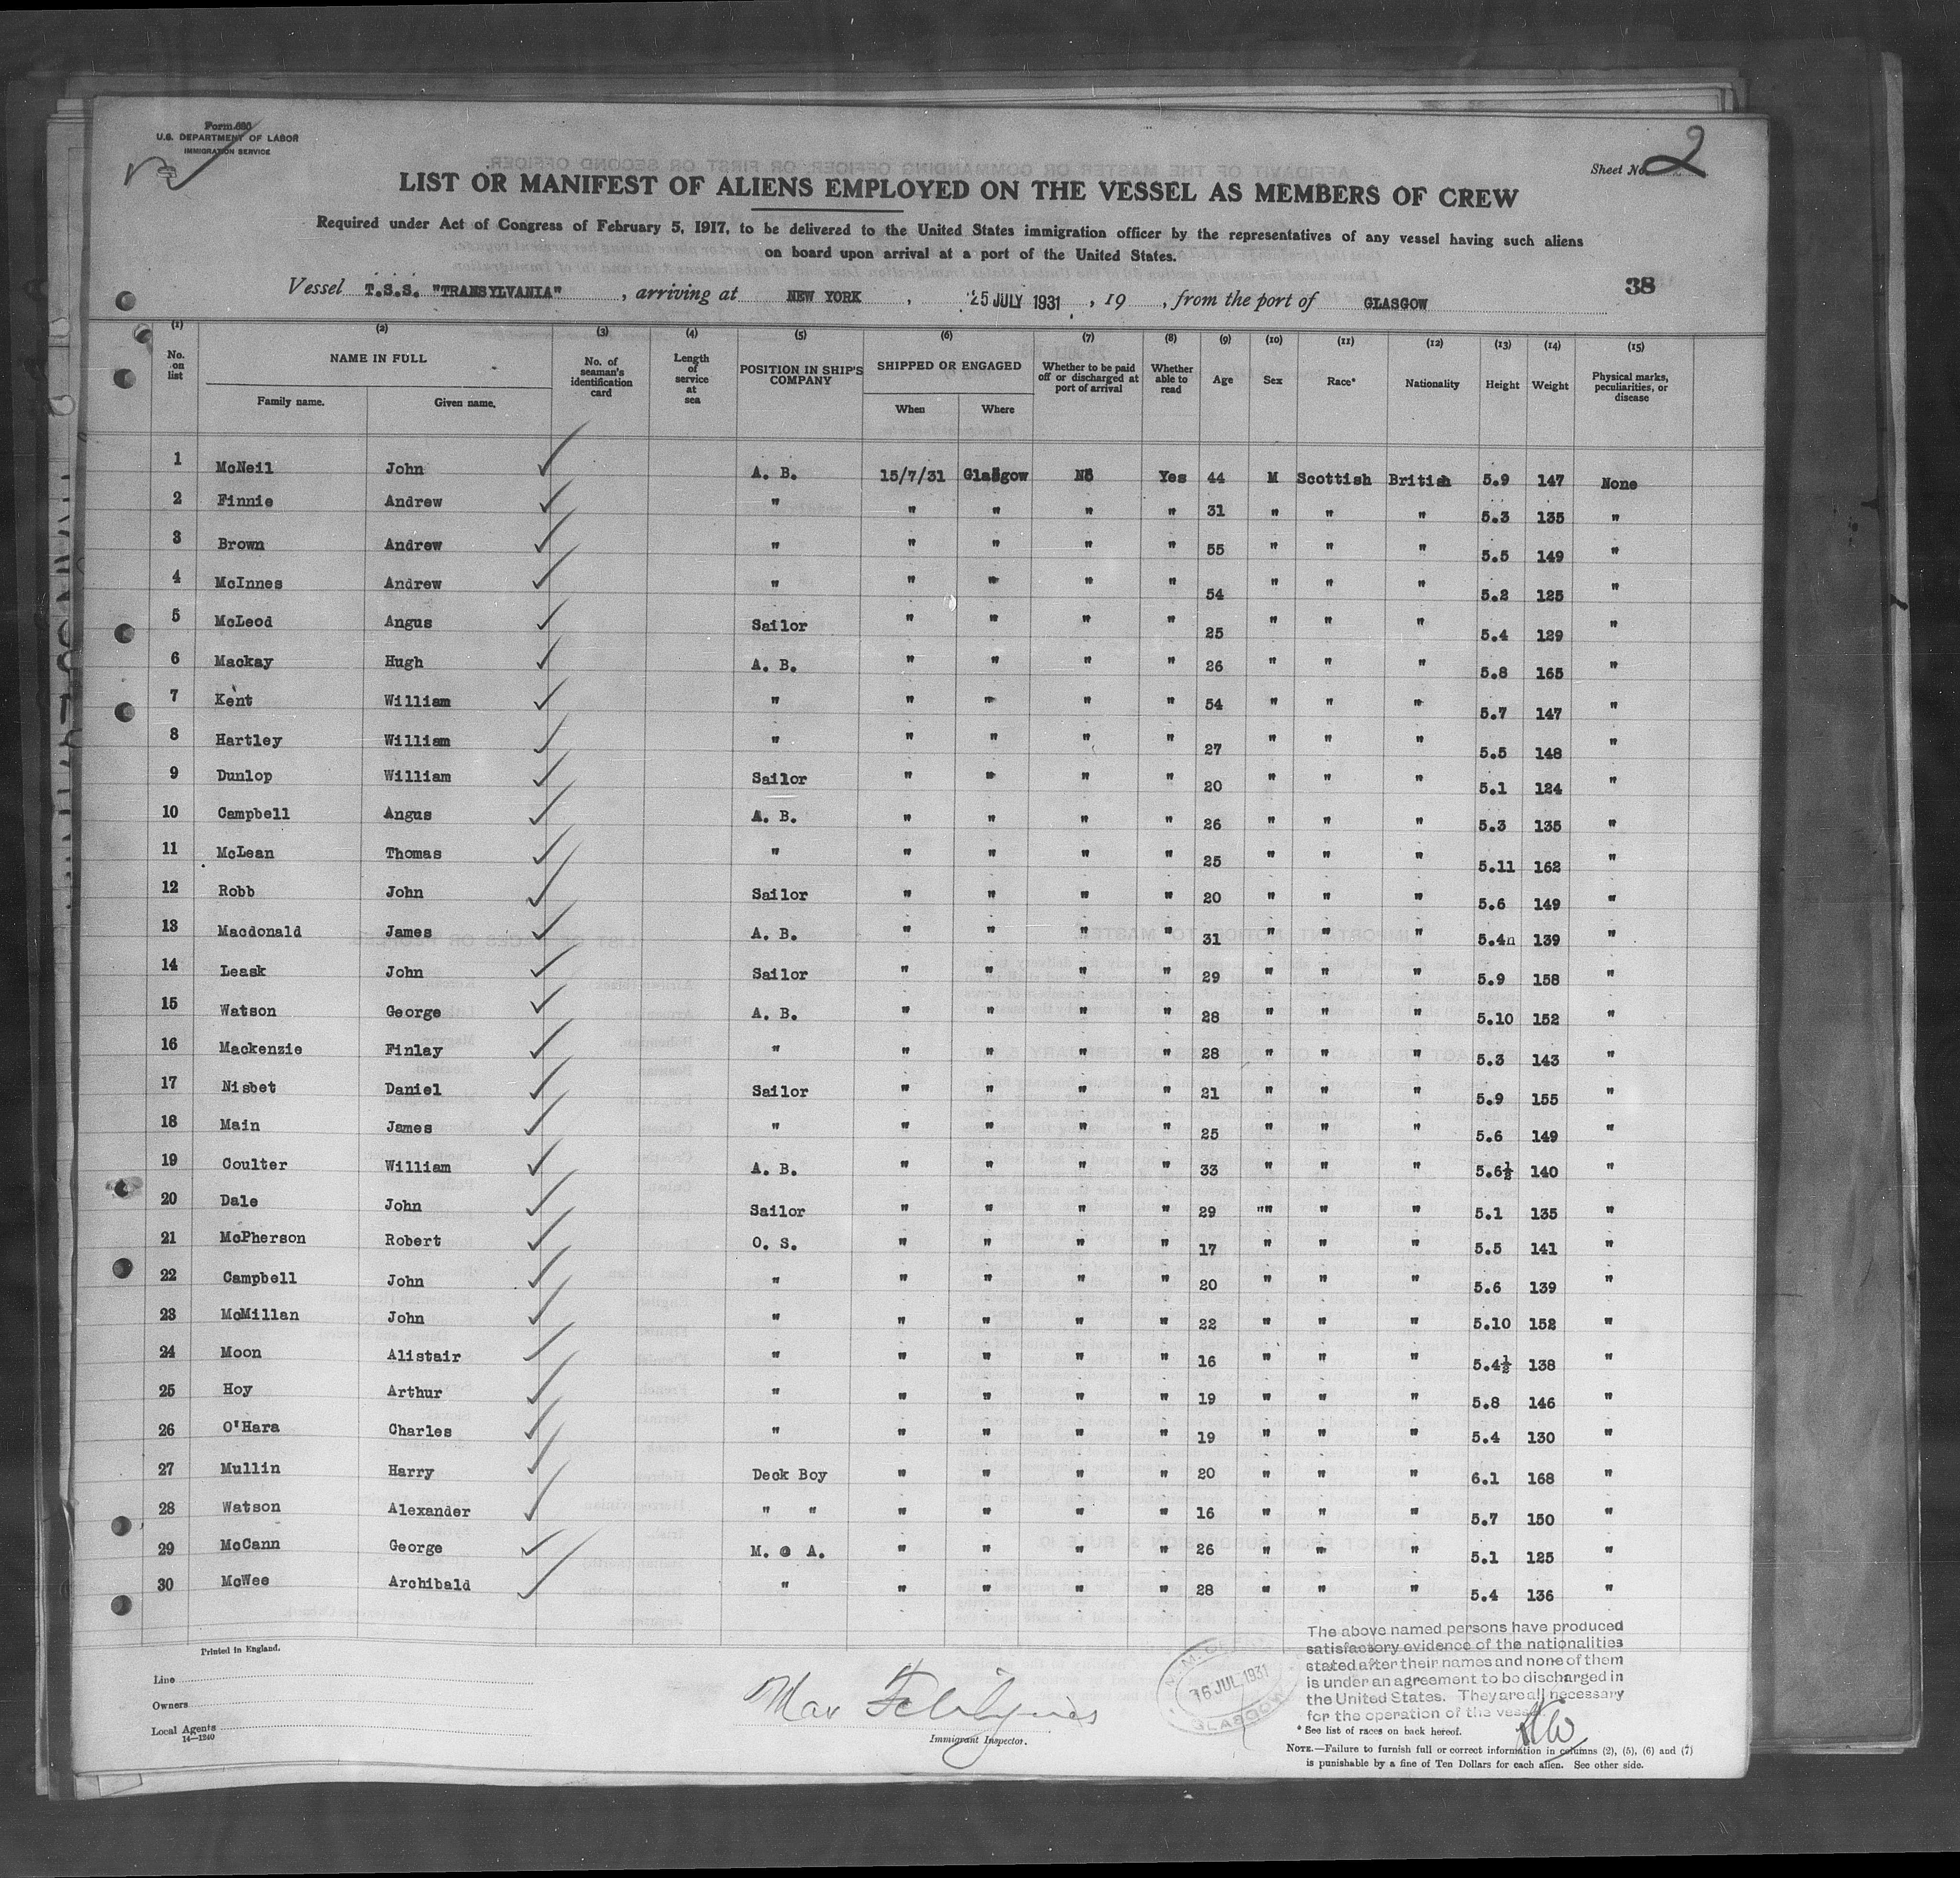 Form 680
U.S. DEPARTMENT OF LABOR
IMMIGRATION SERVICE
Sheet No. 2
LIST OR MANIFEST OF ALIENS EMPLOYED ON THE VESSEL AS MEMBERS OF CREW
Required under Act of Congress of February 5, 1917, to be delivered to the United States immigration officer by the representatives of any vessel having such aliens
on board upon arrival at a port of the United States.
38
Vessel T.S.S. "TRANSYLVANIA", arriving at NEW YORK, 25 JULY 1931, 19 , from the port of GLASGOW
(1) (2) (3) (4) (5) (6) (7) (8) (9) (10) (11) (12) (13) (14) (15)
No. on list NAME IN FULL Family name. Given name. No. of seaman's identification card Length of service at sea POSITION IN SHIP'S COMPANY SHIPPED OR ENGAGED When Where Whether to be paid off or discharged at port of arrival Whether able to read Age Sex Race* Nationality Height Weight Physical marks, peculiarities, or disease
1 McNeil John A. B. 15/7/31 Glasgow No Yes 44 M Scottish British 5.9 147 None
2 Finnie Andrew " " " " " 31 " " " 5.3 135 "
3 Brown Andrew " " " " " 55 " " " 5.5 149 "
4 McInnes Andrew " " " " " 54 " " " 5.2 125 "
5 McLeod Angus Sailor " " " " 25 " " " 5.4 129 "
6 Mackay Hugh A. B. " " " " 26 " " " 5.8 165 "
7 Kent William " " " " " 54 " " " 5.7 147 "
8 Hartley William " " " " " 27 " " " 5.5 148 "
9 Dunlop William Sailor " " " " 20 " " " 5.1 124 "
10 Campbell Angus A. B. " " " " 26 " " " 5.3 135 "
11 McLean Thomas " " " " " 25 " " " 5.11 162 "
12 Robb John Sailor " " " " 20 " " " 5.6 149 "
13 Macdonald James A. B. " " " " 31 " " " 5.4n 139 "
14 Leask John Sailor " " " " 29 " " " 5.9 158 "
15 Watson George A. B. " " " " 28 " " " 5.10 152 "
16 Mackenzie Finlay " " " " " 28 " " " 5.3 143 "
17 Nisbet Daniel Sailor " " " " 21 " " " 5.9 155 "
18 Main James " " " " " 25 " " " 5.6 149 "
19 Coulter William A. B. " " " " 33 " " " 5.6½ 140 "
20 Dale John Sailor " " " " 29 "" " " 5.1 135 "
21 McPherson Robert O. S. " " " " 17 " " " 5.5 141 "
22 Campbell John " " " " " 20 " " " 5.6 139 "
23 McMillan John " " " " " 22 " " " 5.10 152 "
24 Moon Alistair " " " " " 16 " " " 5.4½ 138 "
25 Hoy Arthur " " " " " 19 " " " 5.8 146 "
26 O'Hara Charles " " " " " 19 " " " 5.4 130 "
27 Mullin Harry Deck Boy " " " " 20 " " " 6.1 168 "
28 Watson Alexander " " " " " " 16 " " " 5.7 150 "
29 McCann George M. @ A. " " " " 26 " " " 5.1 125 "
30 McWee Archibald " " " " " 28 " " " 5.4 136 "
Printed in England.
Line
Owners
Local Agents
14—1240
Max
Immigrant Inspector.
16 JUL 1931
GLASGOW
The above named persons have produced
satisfactory evidence of the nationalities
stated after their names and none of them
is under an agreement to be discharged in
the United States. They are all necessary
for the operation of the vessel.
* See list of races on back hereof.
NOTE.—Failure to furnish full or correct information in columns (2), (5), (6) and (7)
is punishable by a fine of Ten Dollars for each alien. See other side.